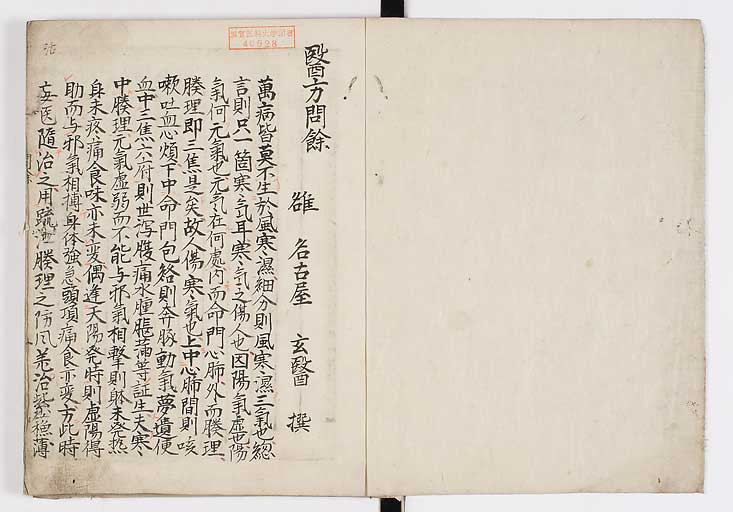 醫方問餘
雒 名古屋 玄醫 撰
萬病皆莫不生於風寒濕細分則風寒濕三氣也總
言則只一箇寒氣耳寒氣之傷人也因陽氣虚也陽
氣何元氣也元氣在何處内而命門心肺外而腠理
腠理即三焦是矣故人傷寒氣也上中心肺間則咳
嗽吐血心煩下中命門包絡則奔豚動氣夢遺便
血中三焦六府則世瀉腹痛水腫脹滿等証生夫寒
中腠理元氣虚弱而不能与邪氣相擊則躰未発熱
身未疼痛食味亦未変偶逢天陽発時則虚陽得
助而与邪氣相搏身体強急頭項痛食亦変方此時
妄医隨治之用疏 腠理之防风羌治 薄